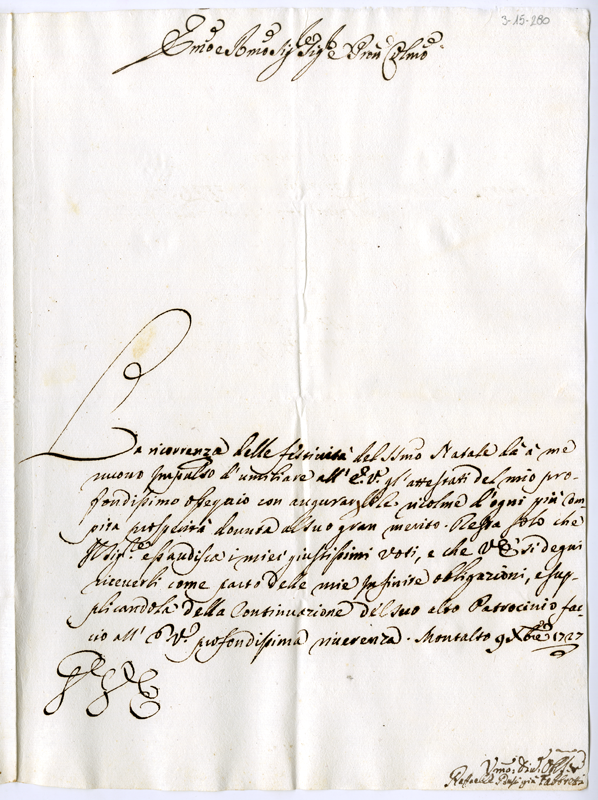 3-15-280
Emo e Rmo Sig Sig e Pron Colmo
La ricorrenza delle festività del Ssmo Natale dà à me
nuovo Impulso d'umiliare all' E.V. gl'attestati del mio pro-
fondissimo ossequio con augurarle ricolme d'ogni più com-
pita prosperità dovuta al suo gran merito. Resta solo che
il Sig.re esaudisca i miei giustissimi voti, e che V.E. si degni
riceverli come parto delle mie Infinite obligazioni, e sup-
plicandola della Continuazione del suo alto Patrocinio fac-
cio all' E.V. profondissima riverenza. Montalto 9 Xbre 1727
Raffaele